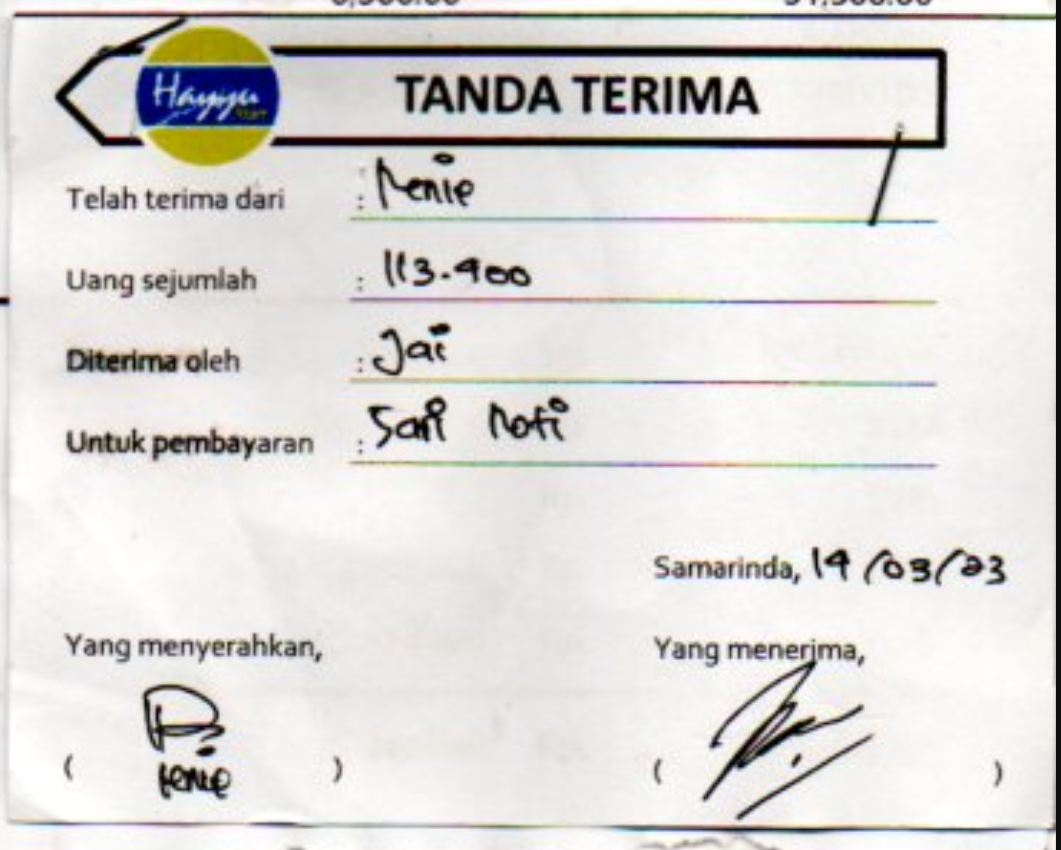 Hayyu
TANDA TERIMA
Telah terima dari : Renie
Uang sejumlah : 113.400
Diterima oleh : Jai
Untuk pembayaran : Sari Roti
Samarinda, 14/03/23
Yang menyerahkan, Yang menerima,
( Renie ) ( )